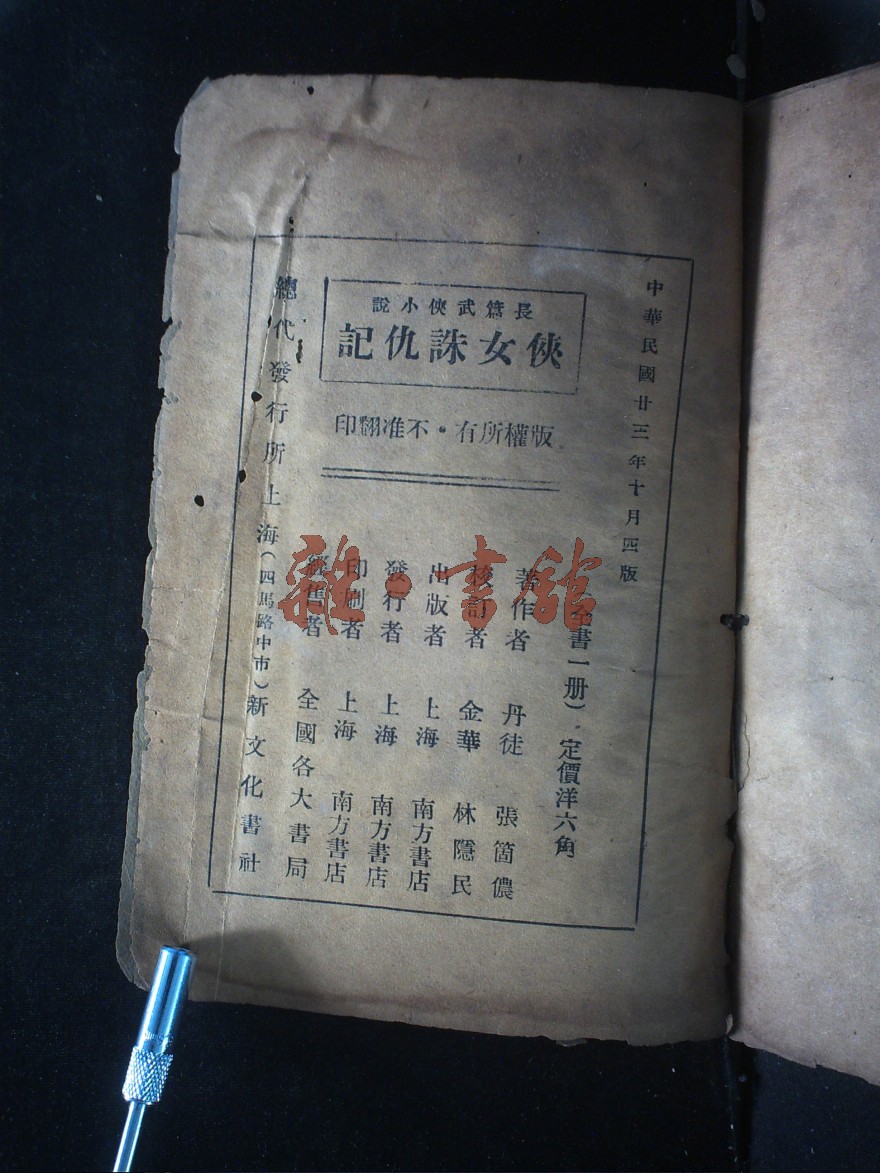 中華民國廿三年十月四版
長篇武俠小說
俠女誅仇記
版權所有·不准翻印
全書一册）定價洋六角
著作者 丹徒 張箇儂
校訂者 金華 林隱民
出版者 上海 南方書店
發行者 上海 南方書店
印刷者 上海 南方書店
經售者 全國各大書局
總代發行所上海（四馬路中市）新文化書社
雜·書館